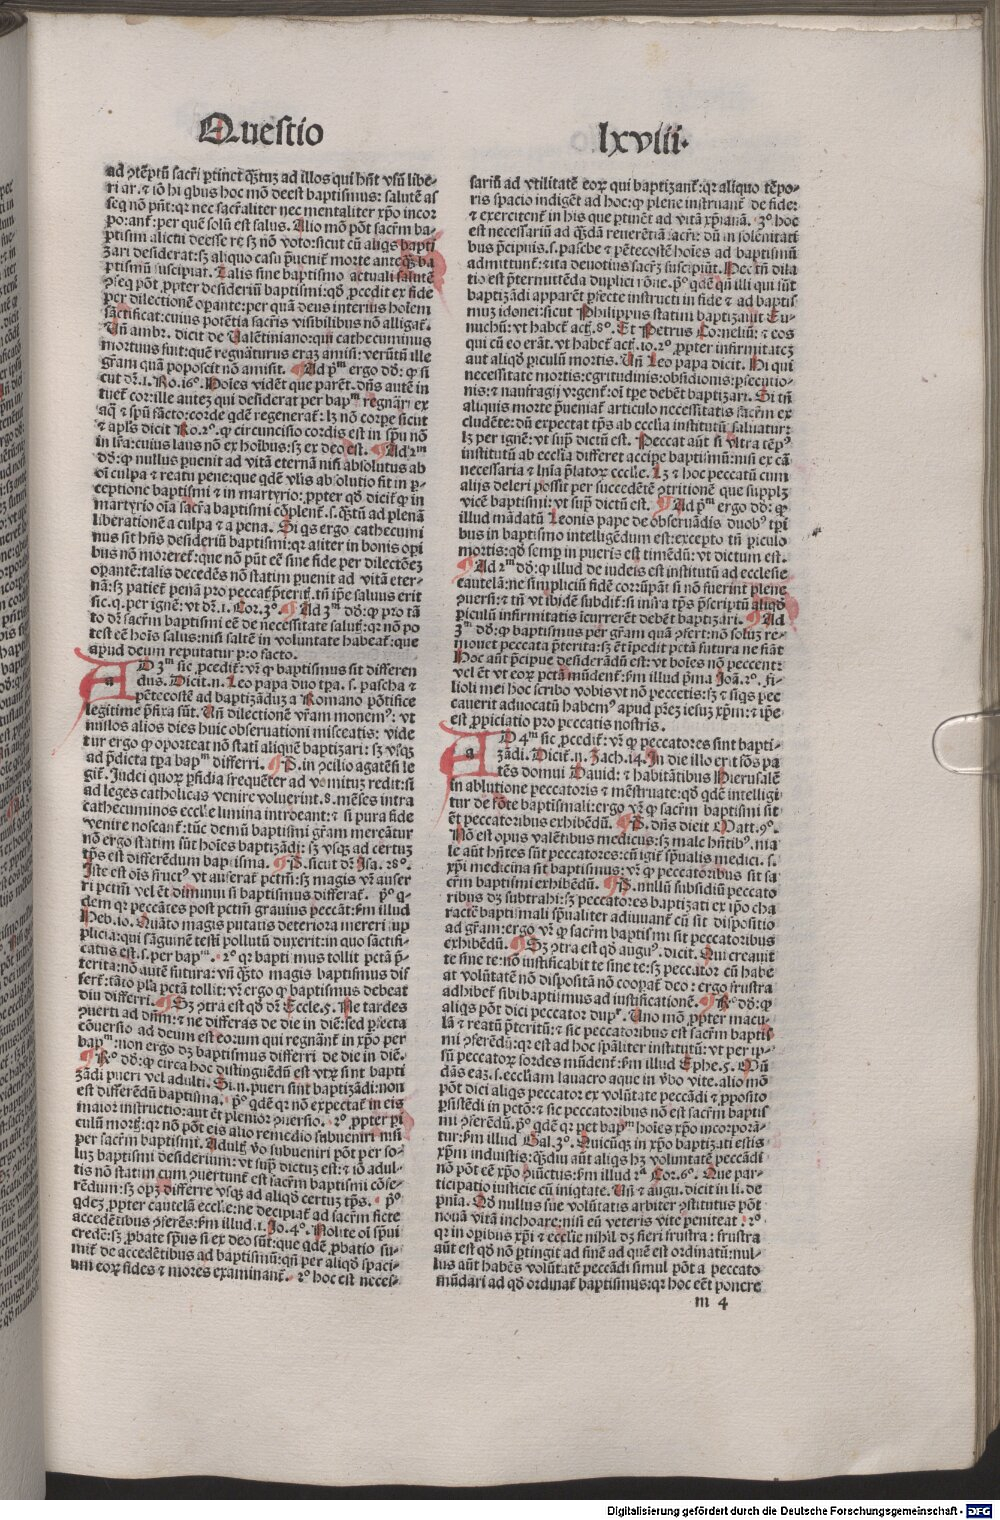 Questio lxviii.
ad ↄtēptū sacr̄i ꝑtinet q̄ꝫtuꝫ ad illos qui hn̄t vsū libe-
ri ar. ⁊ iō hi qbus hoc mō deest baptismus: salutē as
seq nō pn̄t: qr nec sacr̄aliter nec mentaliter xp̄o incor
po: ant᷑: per quē solū est salus. Alio mō pōt sacr̄m ba-
ptismi alicui deesse re sꝫ nō voto: sicut cū aliqs bapti
ȝari desiderat: sꝫ aliquo casu p̄uenit᷑ morte anteq̄ꝫ ba
ptismū suscipiat. Talis sine baptismo actuali salutē
ↄseq pōt ꝓpter desideriū baptismi: qd̄ ꝓcedit ex fide
per dilectionē oꝑante: per quā deus interius hoīem
sāctificat: cuius potētia sacr̄is visibilibus nō alligat᷑.
Un̄ ambr. dicit de Ualētiniano: qui cathecuminus
mortuus fuit: quē regn̄aturus eraꝫ amisi: verūtn̄ ille
gr̄am quā poposcit nō amisit. Ad pͫ ergo dō: ꝙ si
cut dr̄.1. Ro.16º. Hoīes vidēt que parēt. dn̄s autē in
tuet᷑ cor: ille autez qui desiderat per bapͫ regnāri ex
aq̄ ⁊ spū sācto: corde qdē regenerat᷑: lꝫ nō corpe sicut
⁊ apl̄s dicit Ro.2º. ꝙ circuncisio cordis est in spū nō
in lr̄a: cuius laus nō ex hoībus: sꝫ ex deo est. Ad 2ͫ
dō: ꝙ nullus puenit ad vitā eternā nisi absolutus ab
oī culpa ⁊ reatu pene: que qdē vl̄is absolutio fit in ꝑ-
ceptione baptismi ⁊ in martyrio: ꝓpter qd̄ dicit᷑ ꝙ in
martyrio oīa sacr̄a baptismi cōplent᷑. s. q̄ꝫtū ad plenā
liberationē a culpa ⁊ a pena. Si qs ergo cathecumi
nus sit hn̄s desideriū baptismi: qr aliter in bonis opi
bus nō moreret᷑: que nō pn̄t eē sine fide per dilectōeꝫ
oꝑantē: talis decedēs nō statim puenit ad vitā eter-
nā: sꝫ patiet᷑ penā pro peccat̄ p̄terit̄. tn̄ ip̄e saluus erit
sic. q. per ignē: vt dr̄.1. Cor.3º. Ad 3ͫ dō: ꝙ pro tā
to dr̄ sacr̄m baptismi eē de necessitate salut̄: qr nō po
test eē hoīs salus: nisi saltē in voluntate habeat᷑: que
apud deum reputatur pro facto.
AD 3ͫ sic ꝓcedit᷑: vr̄ ꝙ baptismus sit differen
dus. Dicit. n. Leo papa duo tp̄a. s. pascha ⁊
pētecostē ad baptiȝāduꝫ a Romano pōtifice
legitime p̄fixa sūt. Un̄ dilectionē vr̄am monemꝰ: vt
nullos alios dies huic obseruationi misceatis: vide
tur ergo ꝙ oporteat nō statī aliquē baptiȝari: sꝫ vsqꝫ
ad p̄dicta tp̄a bapͫ differri. P. in ↄcilio agatēsi le
git᷑. Iudei quoꝝ ꝑfidia frequēter ad vomitū redit: si
ad leges catholicas venire voluerint.8. mēses intra
cathecuminos ecclie lumina introeant: ⁊ si pura fide
venire noscant᷑: tūc demū baptismi gr̄am mereātur
nō ergo statim sūt hoīes baptiȝādi: sꝫ vsqꝫ ad certuꝫ
tp̄s est differēdum baptisma. P. sicut dr̄ Isa.28º.
Iste est oīs fructꝰ vt auferat᷑ pctm̄: sꝫ magis vr̄ aufer
ri pctm̄ vel ēt diminui si baptismus differat᷑. pº q-
dem qr peccātes post pctm̄ grauius peccāt: ẜm illud
Heb.10. Quāto magis putatis deteriora mereri sup
plicia: qui sāguinē testi pollutū duxerit: in quo sāctifi-
catus est. s. per bapͫ. 2º qr baptismus tollit pctā p̄-
terita: nō autē futura: vn̄ q̄ꝫto magis baptismus dif
fert᷑: tāto pl̄a pctā tollit: vr̄ ergo ꝙ baptismus debeat
diu differri. Sꝫ ↄtra est qd̄ dr̄ Eccle.5. Ne tardes
ↄuerti ad dn̄m: ⁊ ne differas de die in diē: sed ꝑfecta
cōuersio ad deum est eorum qui regnāt᷑ in xp̄o per
bapͫ: non ergo dꝫ baptismus differri de die in diē.
Rº dō: ꝙ circa hoc distinguēdū est vtrꝝ sint bapti
ȝādi pueri vel adulti. Si. n. pueri sint baptiȝādi: non
est differēdū baptisma. pº qdē qr nō expectat᷑ in eis
maior instructio: aut ēt plenior ↄuersio. 2º ꝓpter pi
culū mort̄: qr nō pōt eis alio remedio subueniri nisi
per sacr̄m baptismi. Adult̄ ṽo subueniri pōt per so-
luꝫ baptismi desiderium: vt supra dictuꝫ est: ⁊ iō adul-
tis nō statim cum ↄuertunt᷑ est sacr̄m baptismi cōfe-
rēdum: sꝫ opꝫ differre vsqꝫ ad aliqd̄ certuꝫ tp̄s. pº
qdeꝫ ꝓpter cautelā ecclie: ne decipiat᷑ ad sacr̄m ficte
accedētibus ↄferēs: ẜm illud.1. Jo.4º. Nolite oī spūi
credē: sꝫ ꝓbate spūs si ex deo sūt: que qdē ꝓbatio su-
mit᷑ de accedētibus ad baptismū: qn̄ per aliqd̄ spaci-
um eoꝝ fides ⁊ mores examinant᷑. 2º hoc est neces-
sariū ad vtilitatē eoꝝ qui baptiȝant᷑: qr aliquo tēpo-
ris spacio indigēt ad hoc: ꝙ plene instruant᷑ de fide:
⁊ exercitent᷑ in his que ptinēt ad vitā xp̄ianā. 3º hoc
est necessariū ad q̄ddā reuerētiā sacr̄i: dū in solēnitati
bus p̄cipuis. s. pasche ⁊ pētecostē hoīes ad baptismū
admittunt᷑: ⁊ ita deuotius sacr̄ꝫ suscipiūt. Hec tn̄ dila
tio est p̄termittēda duplici rōne. pº qdē qn̄ illi qui sūt
baptiȝādi apparēt ꝑfecte instructi in fide ⁊ ad baptis
muꝫ idonei: sicut Philippus statim baptiȝauit Eu-
nuchū: vt habet᷑ act̄.8º. Et Petrus Corneliū: ⁊ eos
qui cū eo erāt. vt habet᷑ act̄.10. 2º ꝓpter infirmitateꝫ
aut aliqd̄ piculū mortis. Un̄ Leo papa dicit. Hi qui
necessitate mortis: egritudinis: obsidionis: ꝑsecutio-
nis: ⁊ naufragij vrgent᷑: oī tpe debēt baptiȝari. Si tn̄
aliquis morte p̄ueniat᷑ articulo necessitatis sacr̄m ex
cludēte: dū expectat tp̄s ab ecclia institutū saluatur:
lꝫ per ignē: vt supͣ dictū est. Peccat aūt si vltra tēpꝰ
institutū ab ecclia differet accipe baptismū: nisi ex cā
necessaria ⁊ lnīa p̄latoꝝ ecclie. Lꝫ ⁊ hoc peccatū cum
alijs deleri possit per succedētē ↄtritionē que suppl̄ꝫ
vicē baptismi: vt supͣ dictū est. Ad pͫ ergo dō: ꝙ
illud mādatū Leonis pape de obseruādis duobꝰ tp̄i
bus in baptismo intelligēdum est: excepto tn̄ piculo
mortis: qd̄ semꝑ in pueris est timēdū: vt dictum est.
Ad 2ͫ dō: ꝙ illud de iudeis est institutū ad ecclesie
cautelā: ne simpliciū fidē corrūpāt si nō fuerint plene
ↄuersi: ⁊ tn̄ vt ibidē subdit᷑: si infra tp̄s p̄scriptū aliqd̄
piculū infirmitatis icurrerēt debēt baptiȝari. Ad
3ͫ dō: ꝙ baptismus per gr̄am quā ↄfert: nō soluꝫ re-
mouet peccata p̄terita: sꝫ ēt ipedit pctā futura ne fiāt
Hoc aūt p̄cipue desiderādū est: vt hoīes nō peccent:
vel ēt vt eoꝝ pctā mūdent᷑: ẜm illud p̄ma Joā.2º. Fi-
lioli mei hoc scribo vobis vt nō peccetis: sꝫ ⁊ siqs pec
cauerit aduocatū habemꝰ apud p̄rēꝫ iesuꝫ xp̄m: ⁊ ip̄e
est ꝓpiciatio pro peccatis nostris.
AD 4ͫ sic ꝓcedit᷑: vr̄ ꝙ peccatores sint bapti-
ȝādi. Dicit᷑. n. Zach.14. In die illo erit fōs pa
tēs domui Dauid: ⁊ habitātibus Hierusalē
in ablutione peccatoris ⁊ mēstruate: qd̄ qdē intelligi
tur de fōte baptismali: ergo vr̄ ꝙ sacr̄m baptismi sit
ēt peccatoribus exhibēdū. P. dn̄s dicit Matt.9º.
Nō est opus valētibus medicus: sꝫ male hn̄tibꝰ. ma
le aūt hn̄tes sūt peccatores: cū igit᷑ sp̄ualis medici. s.
xp̄i medicina sit baptismus: vr̄ ꝙ peccatoribus sit sa
cr̄m baptismi exhibēdū. P. nullū subsidiū peccato
ribus dꝫ subtrahi: sꝫ peccatores baptiȝati ex ip̄o cha
ractē baptismali sp̄ualiter adiuuant᷑ cū sit dispositio
ad gr̄am: ergo vr̄ ꝙ sacr̄m baptismi sit peccatoribus
exhibēdū. Sꝫ ↄtra est qd̄ auguꝰ. dicit. Qui creauit
te sine te: nō iustificabit te sine te: sꝫ peccator cū habe
at volūtatē nō dispositā nō cooꝑat᷑ deo: ergo frustra
adhibet᷑ sibi baptismus ad iustificationē. Rº dō: ꝙ
aliqs pōt dici peccator dupͬ. Uno mō ꝓpter macu-
lā ⁊ reatū p̄teritū: ⁊ sic peccatoribus est sacr̄m baptis
mi ↄferēdū: qr est ad hoc sp̄aliter institutū: vt per ip-
sū peccatoꝝ sordes mūdent᷑: ẜm illud Ephe.5. Mū
dās eaꝫ. s. eccliam lauacro aque in ṽbo vite. alio mō
pōt dici aliqs peccator ex volūtate peccādi ⁊ ꝓposito
ꝑsistēdi in pctō: ⁊ sic peccatoribus nō est sacr̄m baptis
mi ↄferēdū. pº qdē qr per bapͫ hoīes xp̄o incorporā-
tur: ẜm illud Gal.3º. Quicūqꝫ in xp̄o baptiȝati estis
xp̄m induistis: q̄ꝫdiu aūt aliqs hꝫ voluntatē peccādi
nō pōt eē xp̄o ↄiūctus: ẜm illud 2ª Cor.6º. Que par-
ticipatio iusticie cū iniqtate. Un̄ ⁊ augu. dicit in li. de
pn̄ia. Qd̄ nullus sue volūtatis arbiter ↄstitutus pōt
nouā vitā inchoare: nisi eū veteris vite peniteat. 2º
qr in opibus xp̄i ⁊ ecclie nihil dꝫ fieri frustra: frustra
aūt est qd̄ nō ꝑtingit ad finē ad quē est ordinatū: nul-
lus aūt habēs volūtatē peccādi simul pōt a peccato
mūdari ad qd̄ ordinat᷑ baptismus: qr hoc eēt ponere
m 4
Digitalisierung gefördert durch die Deutsche Forschungsgemeinschaft - DFG